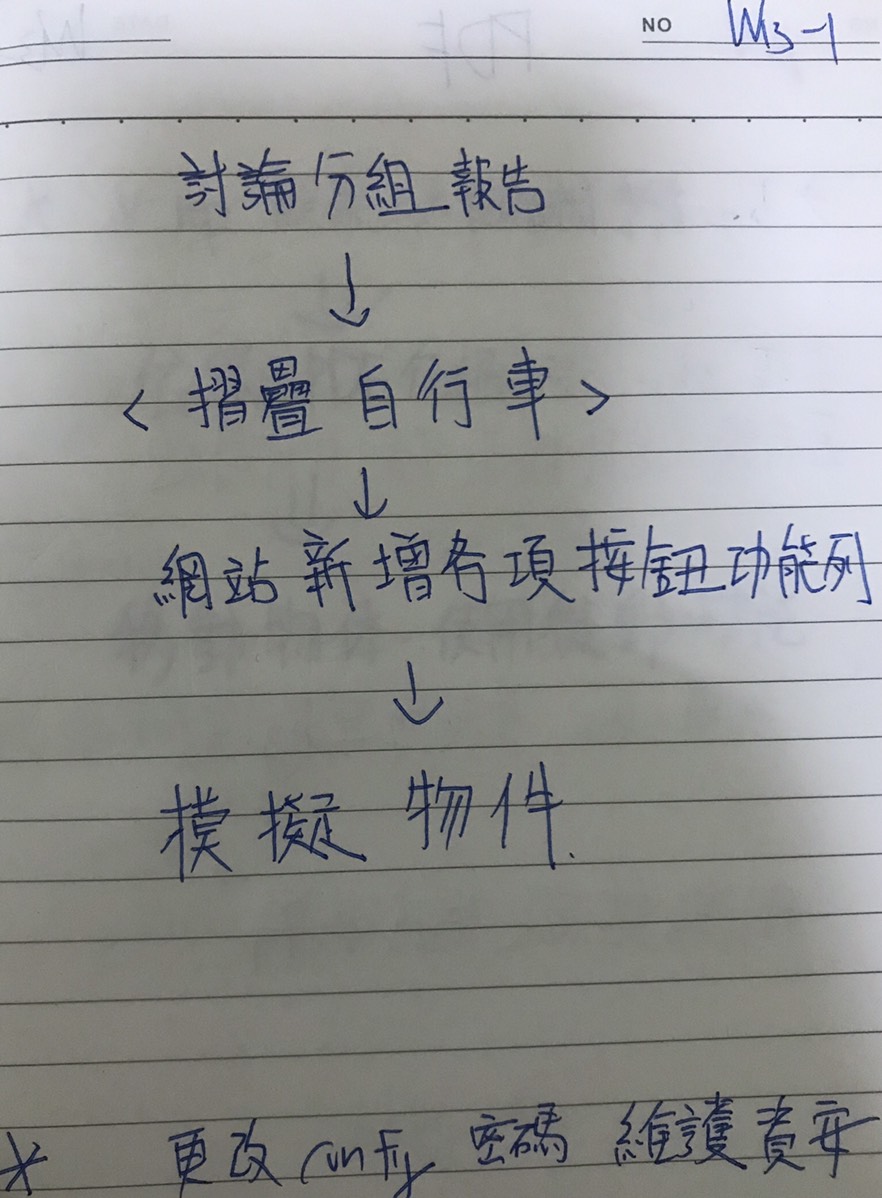 NO W13-1
討論分組報告
↓
<摺疊自行車>
↓
網站新增各項按鈕功能列
↓
模擬物件.
* 更改 config 密碼 維護資安